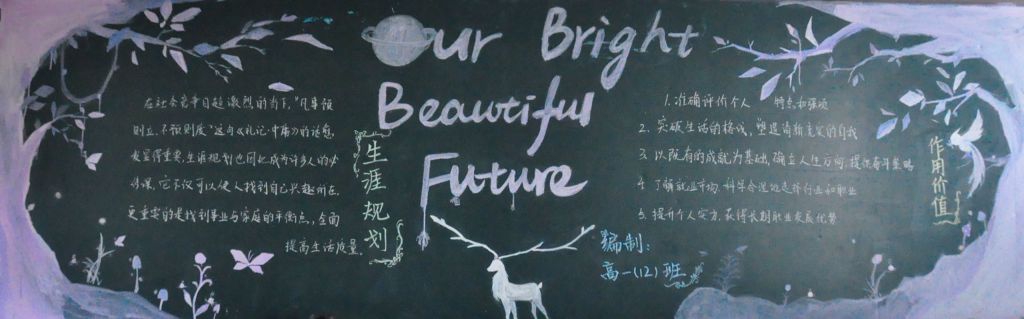 Our Bright
Beautiful
Future
在社会竞争日趋激烈的当下,"凡事预
则立,不预则废"这句《礼记·中庸》的话愈
发显得重要,生涯规划也因此成为许多人的必
修课。它不仅可以使人找到自己兴趣所在,
更重要的是找到事业与家庭的平衡点,全面
提高生活质量。
生涯规划
1. 准确评价个人 特点和强项
2. 突破生活的格线,塑造清新充实的自我
3. 以既有的成就为基础,确立人生方向,提供奋斗策略
4. 了解就业市场,科学合理地选择行业和职业
5. 提升个人实力,获得长期职业发展优势
作用价值
编制:
高一(12)班